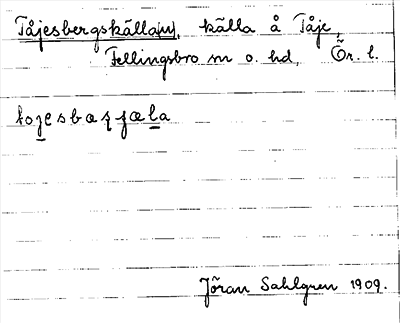 Tåjesbergskälla(n), källa å Tåje,
Fellingsbro sn o. hd, Ör. l.
Jöran Sahlgren 1909.